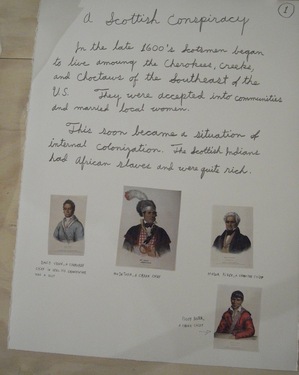 1
A Scottish Conspiracy
In the late 1600's Scotsmen began
to live amoung the Cherokees, Creeks,
and Choctaws of the Southeast of the
U.S. They were accepted into communities
and married local women.
This soon became a situation of
internal colonization. The Scottish Indians
had African slaves and were quite rich.